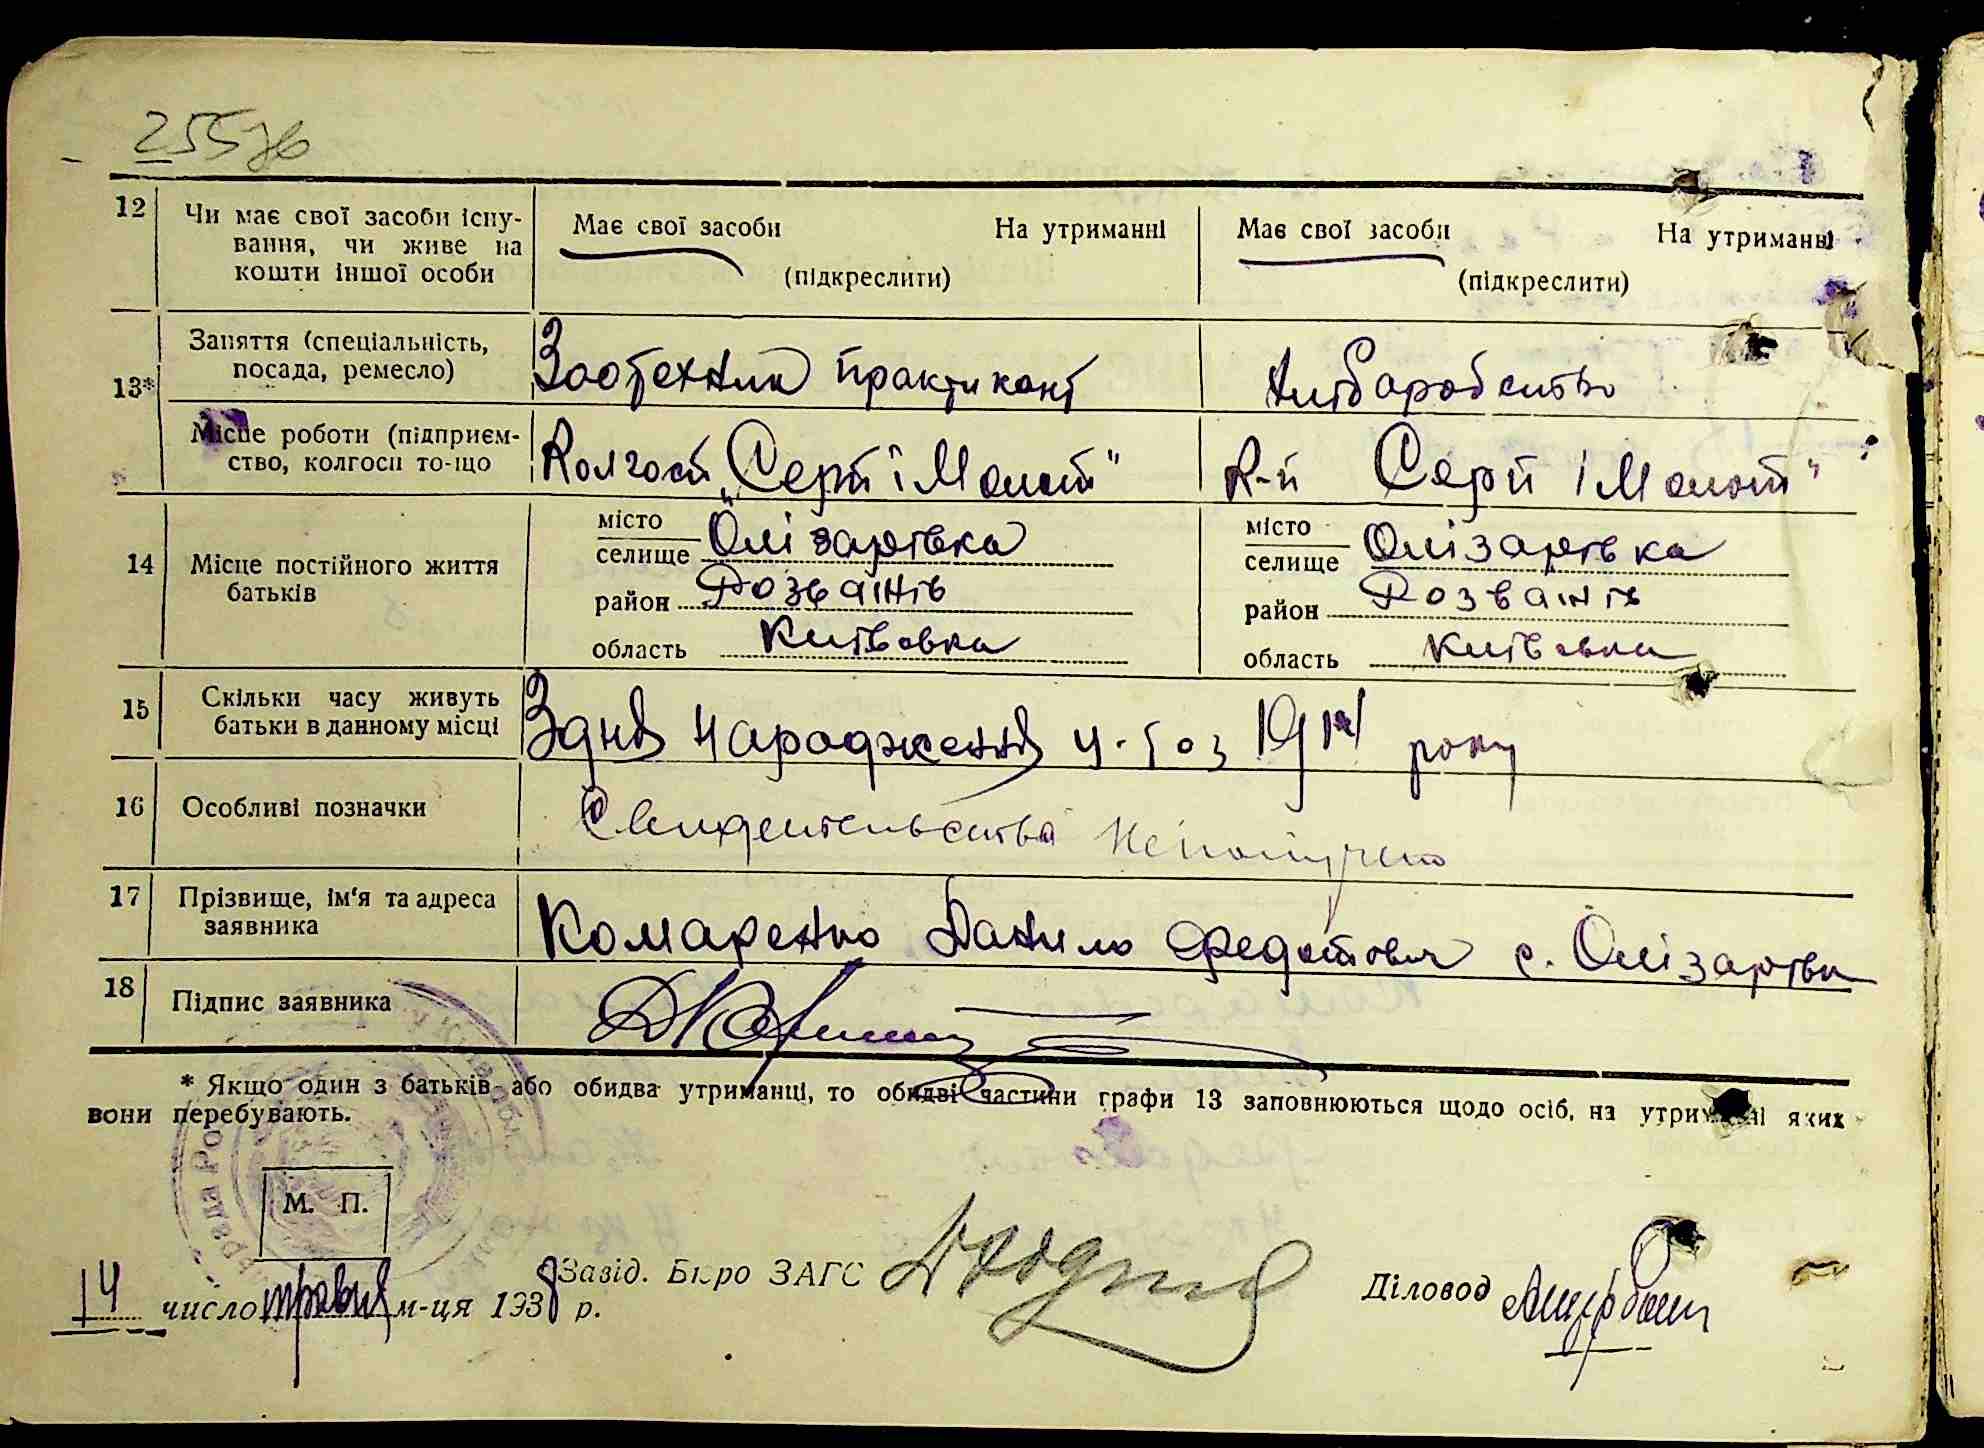 255зв
12 Чи має свої засоби існу-
вання, чи живе на
кошти іншої особи
Має свої засоби На утриманні
(підкреслити)
Має свої засоби На утриманні
(підкреслити)
13* Заняття (спеціальність,
посада, ремесло)
Зоотехник практикант
Місце роботи (підприєм-
ство, колгосп то-що
Колгосп „Серп і Молот"
К-п Серп і Молот"
14 Місце постійного життя
батьків
місто
селище Олізарівка
район Розважів
область Київська
місто
селище Олізарівка
район Розважів
область Київська
15 Скільки часу живуть
батьки в данному місці
З дня народження
року
16 Особливі позначки
Свидетельства не получено
17 Прізвище, ім'я та адреса
заявника
Комаренко Данило Федотович с. Олізарівка
18 Підпис заявника
* Якщо один з батьків або обидва утриманці, то обидві частини графи 13 заповнюються щодо осіб, на утриманні яких
вони перебувають.
М. П.
14 число травня м-ця 1938 р.
Завід. Бюро ЗАГС
Діловод